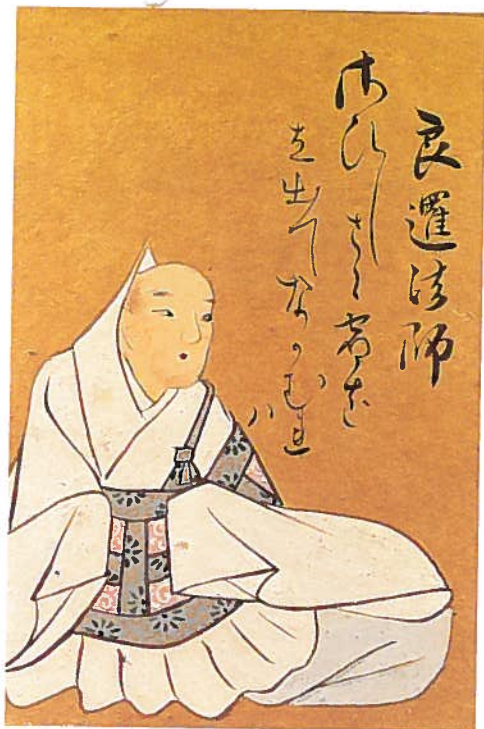 良暹法師
さひしさに宿を
立出てなかむれ
ハ